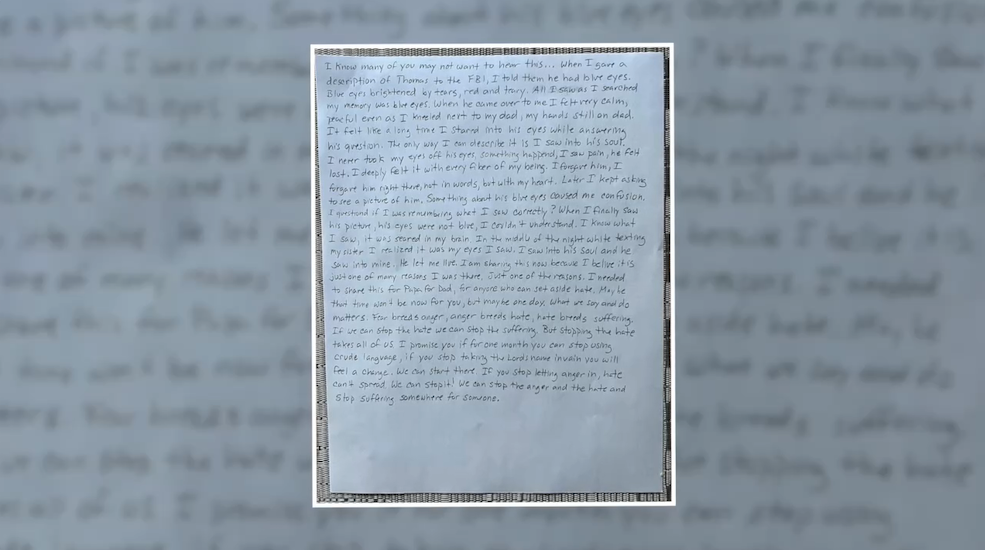 I know many of you may not want to hear this... When I gave a
description of Thomas to the FBI, I told them he had blue eyes.
Blue eyes brightened by tears, red and teary. All I saw as I searched
my memory was blue eyes. When he came over to me I felt very calm,
peaceful even as I kneeled next to my dad, my hands still on dad.
It felt like a long time I stared into his eyes while answering
his question. The only way I can describe it is I saw into his soul.
I never took my eyes off his eyes, something happend, I saw pain, he felt
lost. I deeply felt it with every fiber of my being. I forgave him, I
forgave him right there, not in words, but with my heart. Later I kept asking
to see a picture of him. Something about his blue eyes caused me confusion.
I questiond if I was remembering what I saw correctly? When I finally saw
his picture, his eyes were not blue, I couldn't understand. I know what
I saw, it was seared in my brain. In the middle of the night while texting
my sister I realized it was my eyes I saw. I saw into his soul and he
saw into mine. He let me live. I am sharing this now because I belive it is
just one of many reasons I was there. Just one of the reasons. I needed
to share this for Papa, for Dad, for anyone who can set aside hate. Maybe
that time won't be now for you, but maybe one day. What we say and do
matters. Fear breeds anger, anger breeds hate, hate breeds suffering.
If we can stop the hate we can stop the suffering. But stopping the hate
takes all of us. I promise you if for one month you can stop using
crude language, if you stop taking the Lords name in vain you will
feel a change. We can start there. If you stop letting anger in, hate
can't spread. We can stop it! We can stop the anger and the hate and
stop suffering somewhere for someone.